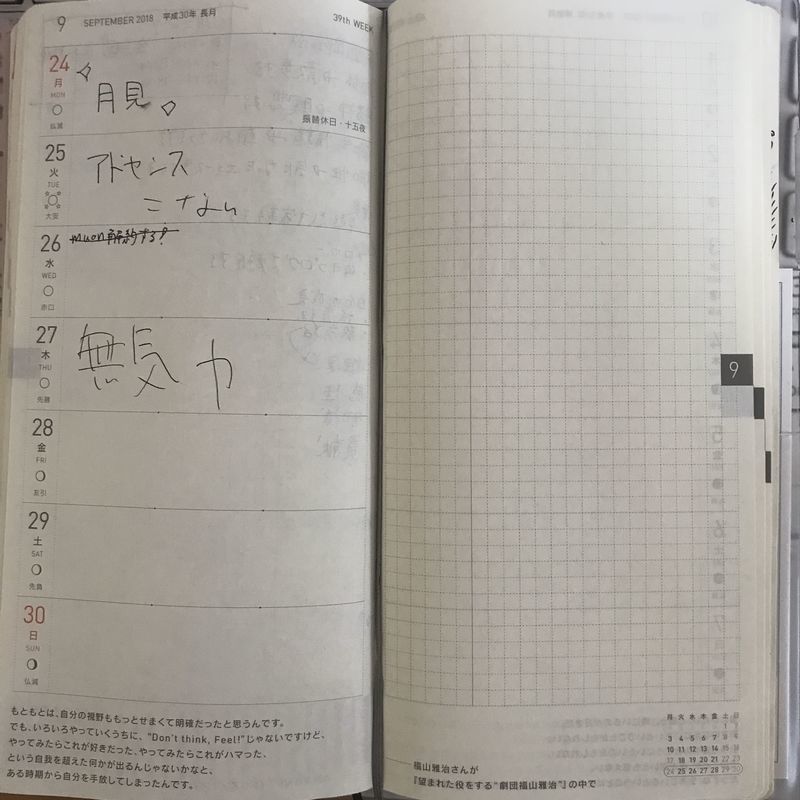 9 SEPTEMBER 2018 平成30年 長月 39th WEEK
24
月
MON
仏滅
月見
振替休日・十五夜
25
火
TUE
大安
アドセンス
こない
26
水
WED
赤口
muon解約する!
27
木
THU
先勝
無気力
28
金
FRI
友引
29
土
SAT
先負
30
日
SUN
仏滅
もともとは、自分の視野ももっとせまくて明確だったと思うんです。
でも、いろいろやっていくうちに、“Don't think, Feel!”じゃないですけど、
やってみたらこれが好きだった、やってみたらこれがハマった、
という自我を超えた何かが出るんじゃないかなと、
ある時期から自分を手放してしまったんです。
9
福山雅治さんが
『望まれた役をする“劇団福山雅治”』の中で
月 火 水 木 金 土 日
1 2
3 4 5 6 7 8 9
10 11 12 13 14 15 16
17 18 19 20 21 22 23
24 25 26 27 28 29 30